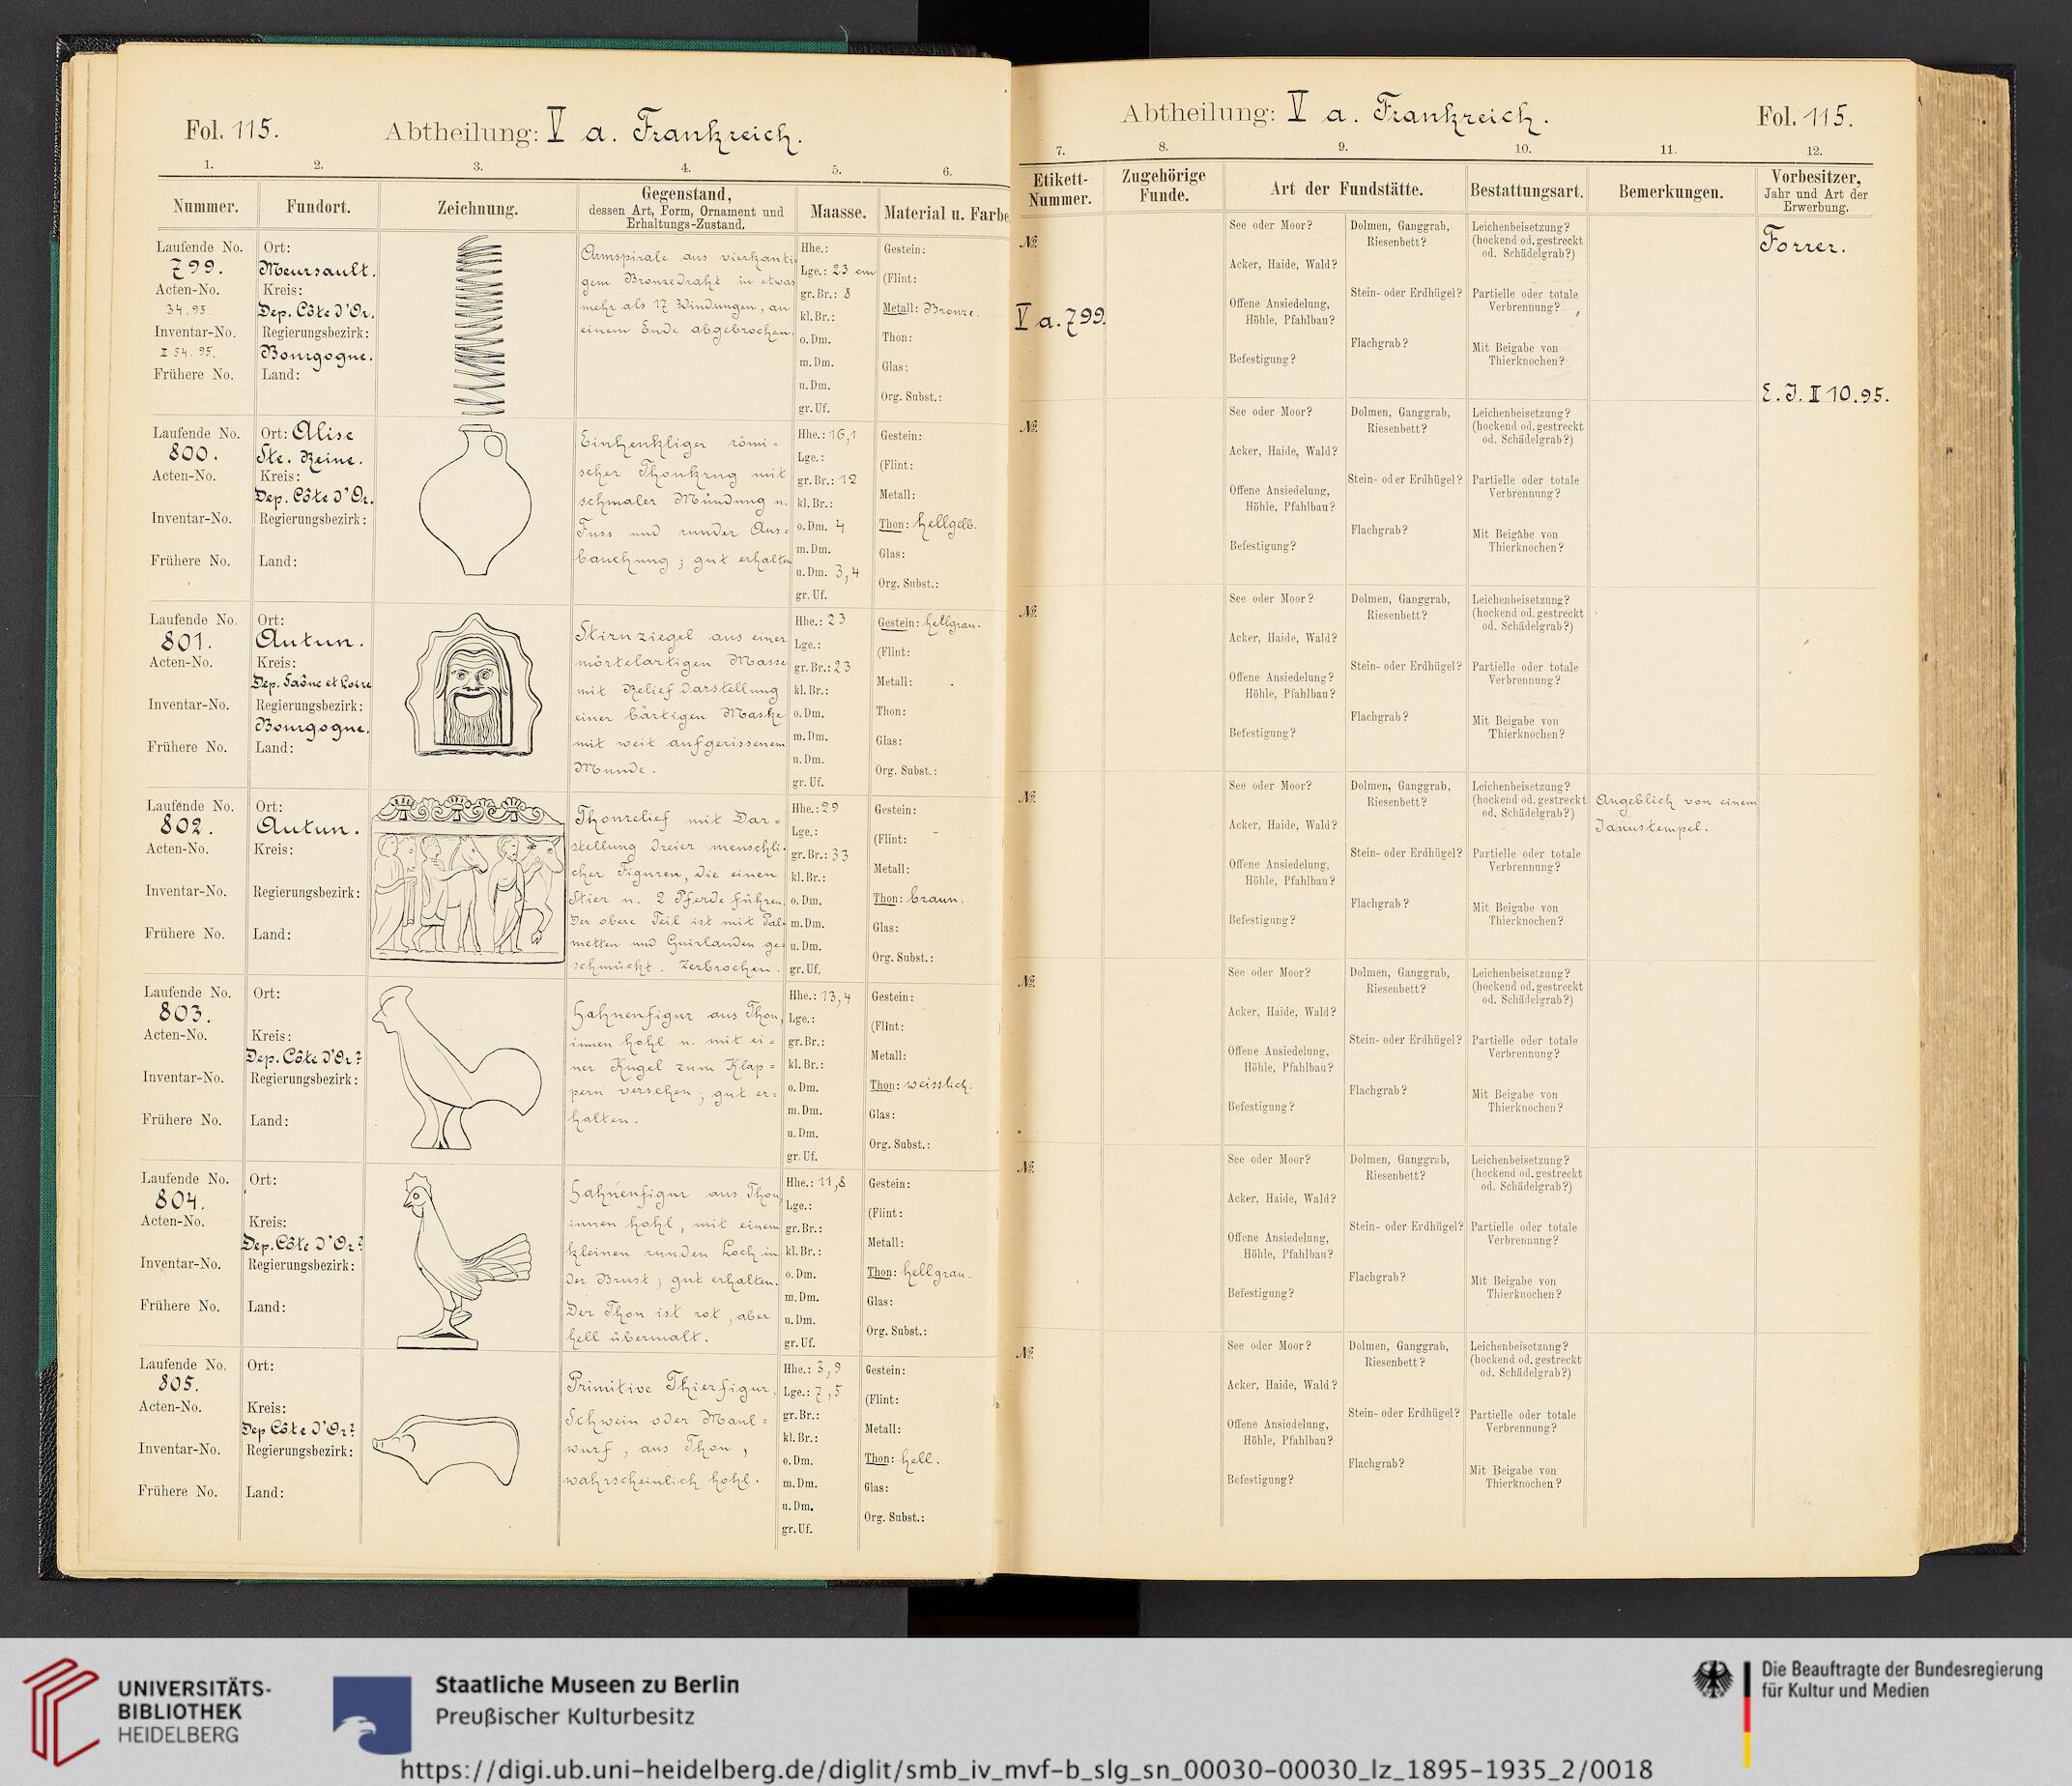 Fol. 115.
Abtheilung: V a. Frankreich.
1. 2. 3. 4. 5. 6.
Nummer.
Fundort.
Zeichnung.
Gegenstand,
dessen Art, Form, Ornament und
Erhaltungs-Zustand.
Maasse.
Material u. Farbe
Laufende No.
799.
Acten-No.
34.95.
Inventar-No.
II 54. 95.
Frühere No.
Ort:
Meursault.
Kreis:
Dep. Côte d'Or.
Regierungsbezirk:
Bourgogne.
Land:
Armspirale aus vierkanti-
gem Bronzedraht in etwas
mehr als 17 Windungen, an
einem Ende abgebrochen.
Hhe.:
Lge.: 23 cm
gr. Br.: 8
kl. Br.:
o. Dm.
m. Dm.
u. Dm.
gr. Uf.
Gestein:
(Flint:
Metall: Bronze.
Thon:
Glas:
Org. Subst.:
Laufende No.
800.
Acten-No.
Inventar-No.
Frühere No.
Ort: Alise
Ste. Reine.
Kreis:
Dep. Côte d'Or.
Regierungsbezirk:
Land:
Einhenkliger römi-
scher Thonkrug mit
schmaler Mündung u.
Fuss und runder Aus-
bauchung; gut erhalten
Hhe.: 16,1
Lge.:
gr. Br.: 12
kl. Br.:
o. Dm. 4
m. Dm.
u. Dm. 3,4
gr. Uf.
Gestein:
(Flint:
Metall:
Thon: hellgelb.
Glas:
Org. Subst.:
Laufende No.
801.
Acten-No.
Inventar-No.
Frühere No.
Ort:
Autun.
Kreis:
Dep. Saône et Loire
Regierungsbezirk:
Bourgogne.
Land:
Stirnziegel aus einer
mörtelartigen Masse
mit Reliefdarstellung
einer bärtigen Maske
mit weit aufgerissenem
Munde.
Hhe.: 23
Lge.:
gr. Br.: 23
kl. Br.:
o. Dm.
m. Dm.
u. Dm.
gr. Uf.
Gestein: hellgrau.
(Flint:
Metall:
Thon:
Glas:
Org. Subst.:
Laufende No.
802.
Acten-No.
Inventar-No.
Frühere No.
Ort:
Autun.
Kreis:
Regierungsbezirk:
Land:
Thonrelief mit Dar-
stellung dreier menschli-
cher Figuren, die einen
Stier u. 2 Pferde führen.
Der obere Teil ist mit Pal-
metten und Guirlanden ge-
schmückt. Zerbrochen.
Hhe.: 29
Lge.:
gr. Br.: 33
kl. Br.:
o. Dm.
m. Dm.
u. Dm.
gr. Uf.
Gestein:
(Flint:
Metall:
Thon: braun.
Glas:
Org. Subst.:
Laufende No.
803.
Acten-No.
Inventar-No.
Frühere No.
Ort:
Kreis:
Dep. Côte d'Or?
Regierungsbezirk:
Land:
Hahnenfigur aus Thon,
innen hohl u. mit ei-
ner Kugel zum Klap-
pern versehen; gut er-
halten.
Hhe.: 13,4
Lge.:
gr. Br.:
kl. Br.:
o. Dm.
m. Dm.
u. Dm.
gr. Uf.
Gestein:
(Flint:
Metall:
Thon: weisslich.
Glas:
Org. Subst.:
Laufende No.
804.
Acten-No.
Inventar-No.
Frühere No.
Ort:
Kreis:
Dep. Côte d'Or?
Regierungsbezirk:
Land:
Hahnenfigur aus Thon
innen hohl, mit einem
kleinen runden Loch in
der Brust; gut erhalten.
Der Thon ist rot, aber
hell übermalt.
Hhe.: 11,8
Lge.:
gr. Br.:
kl. Br.:
o. Dm.
m. Dm.
u. Dm.
gr. Uf.
Gestein:
(Flint:
Metall:
Thon: hellgrau.
Glas:
Org. Subst.:
Laufende No.
805.
Acten-No.
Inventar-No.
Frühere No.
Ort:
Kreis:
Dep Côte d'Or?
Regierungsbezirk:
Land:
Primitive Thierfigur,
Schwein oder Maul-
wurf, aus Thon,
wahrscheinlich hohl.
Hhe.: 3,9
Lge.: 7,5
gr. Br.:
kl. Br.:
o. Dm.
m. Dm.
u. Dm.
gr. Uf.
Gestein:
(Flint:
Metall:
Thon: hell.
Glas:
Org. Subst.:
Abtheilung: V a. Frankreich.
Fol. 115.
7. 8. 9. 10. 11. 12.
Etikett-
Nummer.
Zugehörige
Funde.
Art der Fundstätte.
Bestattungsart.
Bemerkungen.
Vorbesitzer,
Jahr und Art der
Erwerbung.
№
V a. 799.
See oder Moor?
Acker, Haide, Wald?
Offene Ansiedelung,
Höhle, Pfahlbau?
Befestigung?
Dolmen, Ganggrab,
Riesenbett?
Stein- oder Erdhügel?
Flachgrab?
Leichenbeisetzung?
(hockend od. gestreckt
od. Schädelgrab?)
Partielle oder totale
Verbrennung?
Mit Beigabe von
Thierknochen?
Forrer.
E. J. II 10.95.
№
See oder Moor?
Acker, Haide, Wald?
Offene Ansiedelung,
Höhle, Pfahlbau?
Befestigung?
Dolmen, Ganggrab,
Riesenbett?
Stein- oder Erdhügel?
Flachgrab?
Leichenbeisetzung?
(hockend od. gestreckt
od. Schädelgrab?)
Partielle oder totale
Verbrennung?
Mit Beigabe von
Thierknochen?
№
See oder Moor?
Acker, Haide, Wald?
Offene Ansiedelung?
Höhle, Pfahlbau?
Befestigung?
Dolmen, Ganggrab,
Riesenbett?
Stein- oder Erdhügel?
Flachgrab?
Leichenbeisetzung?
(hockend od. gestreckt
od. Schädelgrab?)
Partielle oder totale
Verbrennung?
Mit Beigabe von
Thierknochen?
№
See oder Moor?
Acker, Haide, Wald?
Offene Ansiedelung,
Höhle, Pfahlbau?
Befestigung?
Dolmen, Ganggrab,
Riesenbett?
Stein- oder Erdhügel?
Flachgrab?
Leichenbeisetzung?
(hockend od. gestreckt
od. Schädelgrab?)
Partielle oder totale
Verbrennung?
Mit Beigabe von
Thierknochen?
Angeblich von einem
Janustempel.
№
See oder Moor?
Acker, Haide, Wald?
Offene Ansiedelung,
Höhle, Pfahlbau?
Befestigung?
Dolmen, Ganggrab,
Riesenbett?
Stein- oder Erdhügel?
Flachgrab?
Leichenbeisetzung?
(hockend od. gestreckt
od. Schädelgrab?)
Partielle oder totale
Verbrennung?
Mit Beigabe von
Thierknochen?
№
See oder Moor?
Acker, Haide, Wald?
Offene Ansiedelung,
Höhle, Pfahlbau?
Befestigung?
Dolmen, Ganggrab,
Riesenbett?
Stein- oder Erdhügel?
Flachgrab?
Leichenbeisetzung?
(hockend od. gestreckt
od. Schädelgrab?)
Partielle oder totale
Verbrennung?
Mit Beigabe von
Thierknochen?
№
See oder Moor?
Acker, Haide, Wald?
Offene Ansiedelung,
Höhle, Pfahlbau?
Befestigung?
Dolmen, Ganggrab,
Riesenbett?
Stein- oder Erdhügel?
Flachgrab?
Leichenbeisetzung?
(hockend od. gestreckt
od. Schädelgrab?)
Partielle oder totale
Verbrennung?
Mit Beigabe von
Thierknochen?
UNIVERSITÄTS-
BIBLIOTHEK
HEIDELBERG
Staatliche Museen zu Berlin
Preußischer Kulturbesitz
Die Beauftragte der Bundesregierung
für Kultur und Medien
https://digi.ub.uni-heidelberg.de/diglit/smb_iv_mvf-b_slg_sn_00030-00030_lz_1895-1935_2/0018